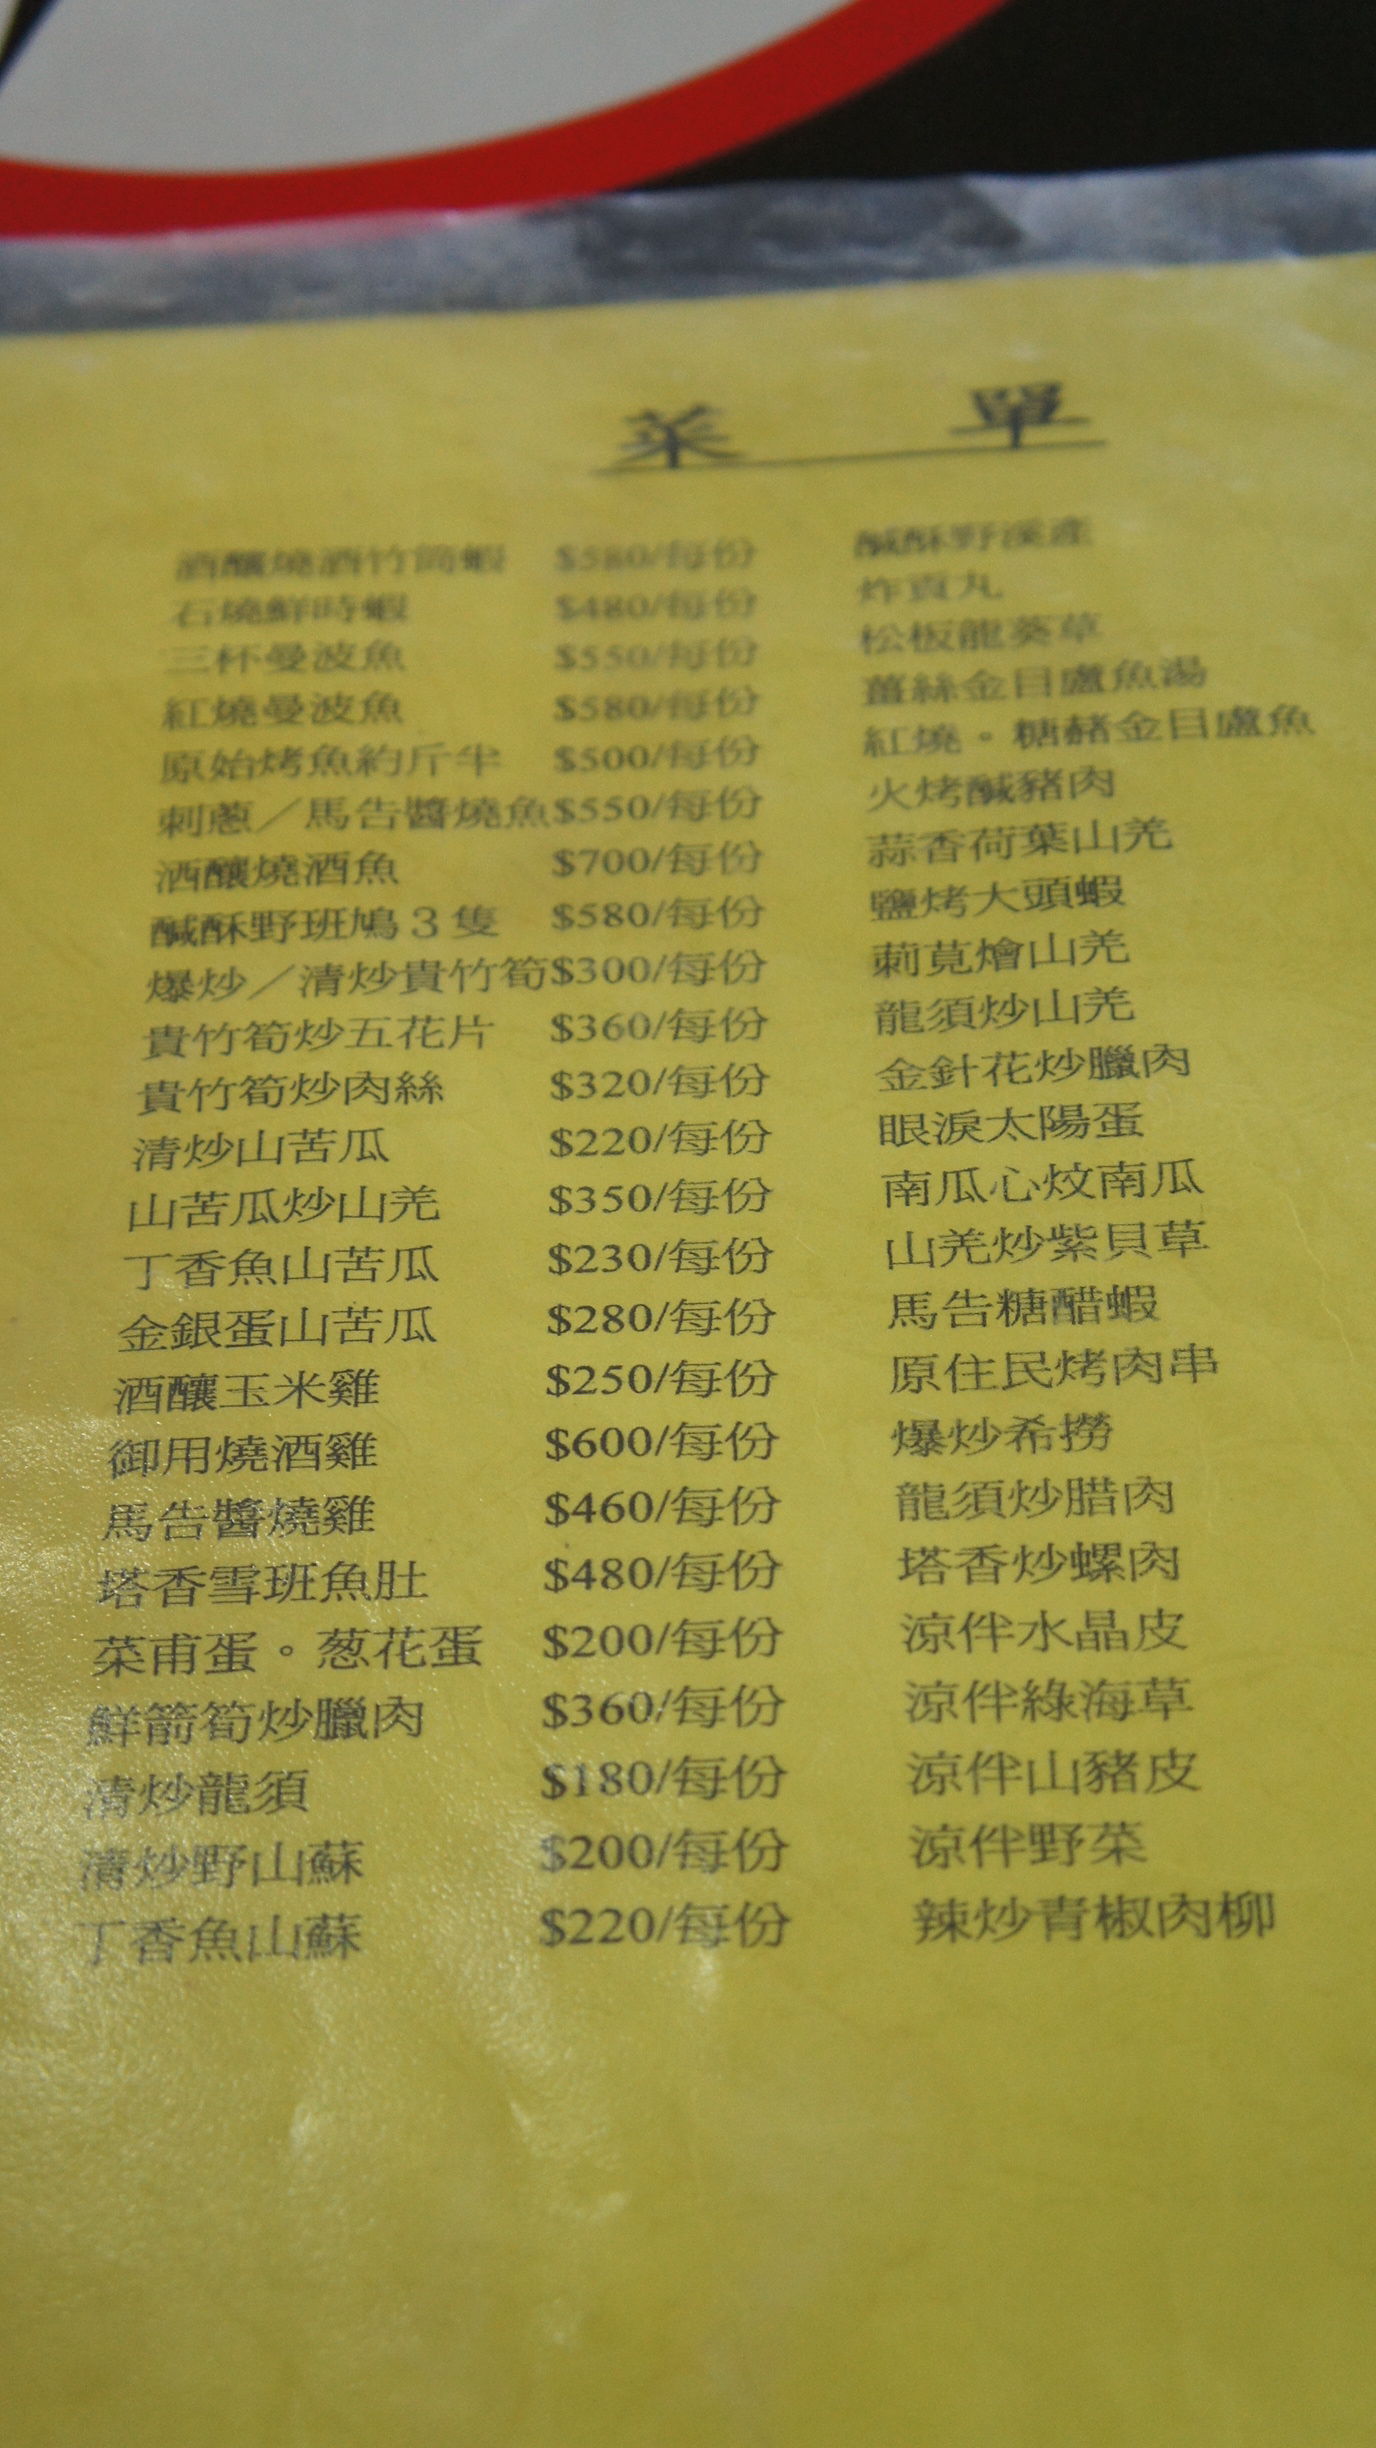 菜 單
酒釀燒酒竹筒蝦 $580/每份
石燒鮮時蝦 $480/每份
三杯曼波魚 $550/每份
紅燒曼波魚 $580/每份
原始烤魚約斤半 $500/每份
刺蔥／馬告醬燒魚$550/每份
酒釀燒酒魚 $700/每份
鹹酥野班鳩３隻 $580/每份
爆炒／清炒貴竹筍$300/每份
貴竹筍炒五花片 $360/每份
貴竹筍炒肉絲 $320/每份
清炒山苦瓜 $220/每份
山苦瓜炒山羌 $350/每份
丁香魚山苦瓜 $230/每份
金銀蛋山苦瓜 $280/每份
酒釀玉米雞 $250/每份
御用燒酒雞 $600/每份
馬告醬燒雞 $460/每份
塔香雪班魚肚 $480/每份
菜甫蛋。葱花蛋 $200/每份
鮮箭筍炒臘肉 $360/每份
清炒龍須 $180/每份
清炒野山蘇 $200/每份
丁香魚山蘇 $220/每份
鹹酥野溪產
炸貢丸
松板龍葵草
薑絲金目盧魚湯
紅燒。糖赭金目盧魚
火烤鹹豬肉
蒜香荷葉山羌
鹽烤大頭蝦
莿莧燴山羌
龍須炒山羌
金針花炒臘肉
眼淚太陽蛋
南瓜心炆南瓜
山羌炒紫貝草
馬告糖醋蝦
原住民烤肉串
爆炒希撈
龍須炒腊肉
塔香炒螺肉
涼伴水晶皮
涼伴綠海草
涼伴山豬皮
涼伴野菜
辣炒青椒肉柳